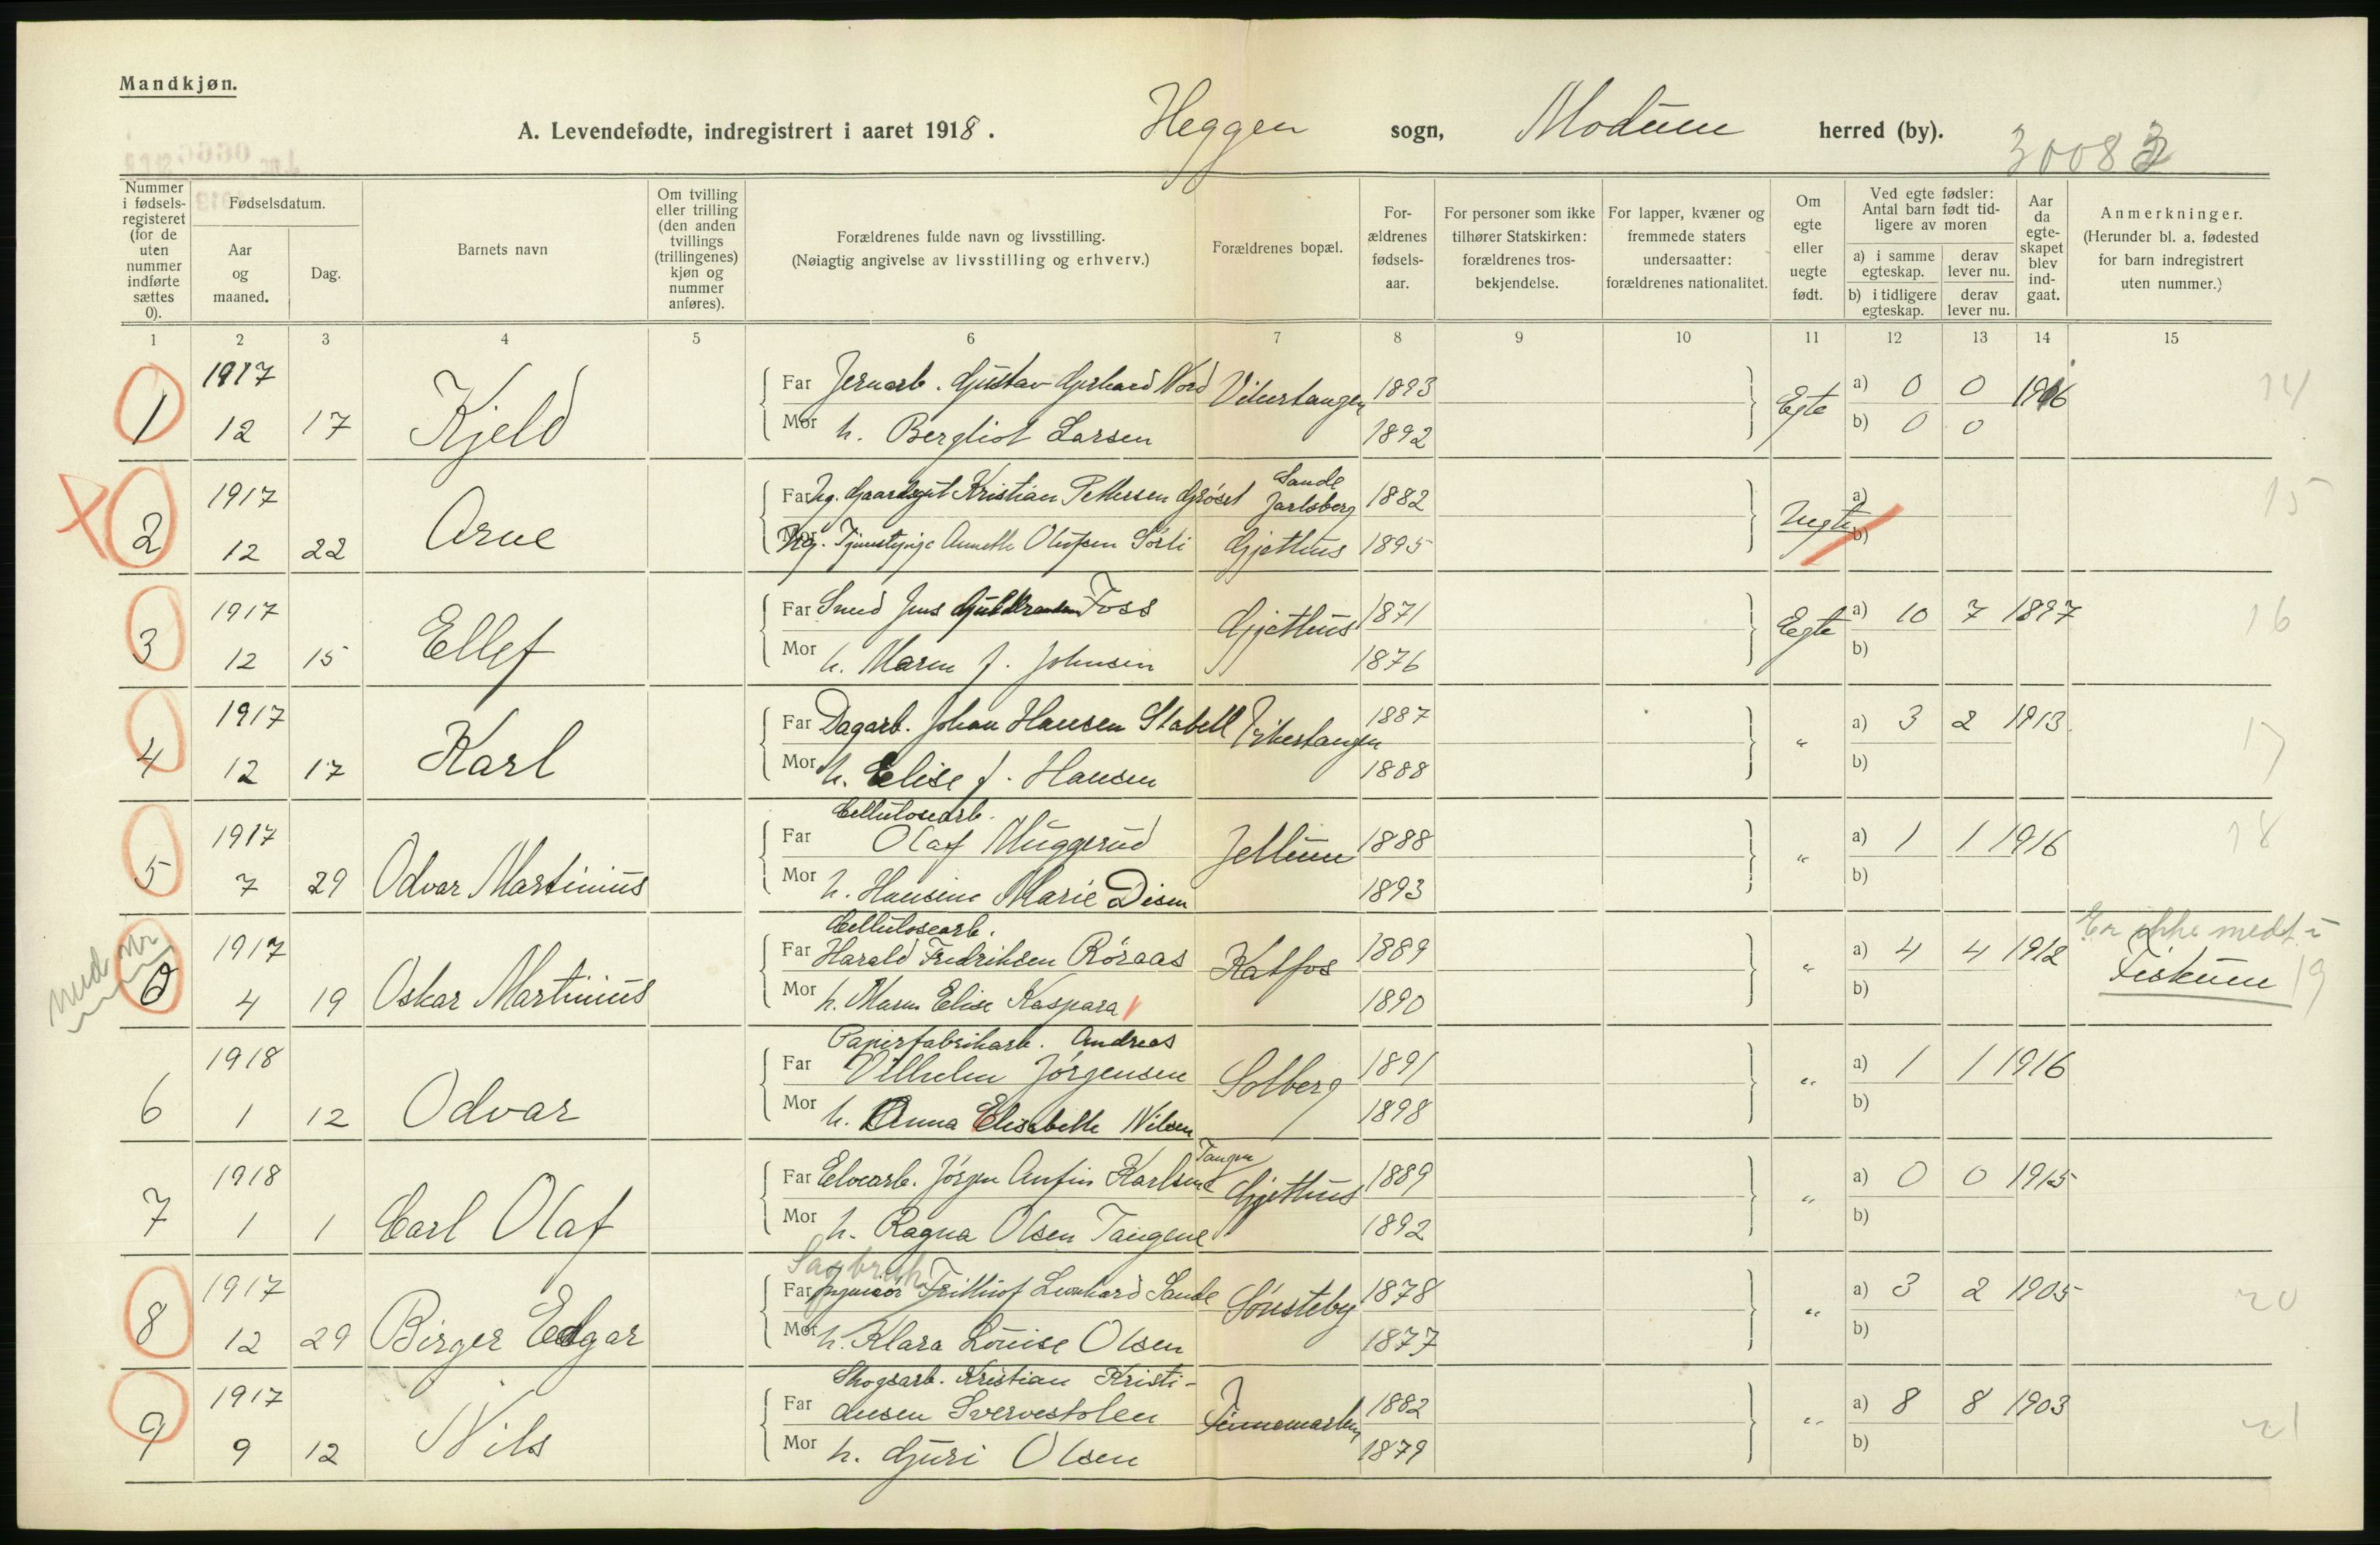 Mandkjøn.
A. Levendefødte, indregistrert i aaret 1918. Heggen sogn, Modum herred (by).
3008
Nummer i fødsels-registeret (for de uten nummer indførte sættes 0).
Fødselsdatum.
Aar og maaned.
Dag.
Barnets navn
Om tvilling eller trilling (den anden tvillings (trillingenes) kjøn og nummer anføres).
Forældrenes fulde navn og livsstilling.
(Nøiagtig angivelse av livsstilling og erhverv.)
Forældrenes bopæl.
For-ældrenes fødsels-aar.
For personer som ikke tilhører Statskirken: forældrenes tros-bekjendelse.
For lapper, kvæner og fremmede staters undersaatter: forældrenes nationalitet.
Om egte eller uegte født.
Ved egte fødsler: Antal barn født tid-ligere av moren
a) i samme egteskap.
derav lever nu.
b) i tidligere egteskap.
derav lever nu.
Aar da egte-skapet blev ind-gaat.
Anmerkninger.
(Herunder bl. a. fødested for barn indregistrert uten nummer.)
1 2 3 4 5 6 7 8 9 10 11 12 13 14 15
1917 Far Jernarb. Gustav Gerhard Nord Vikerstangen 1893 a) 0 0 1916 14
1 12 17 Kjeld Mor h. Bergliot Larsen 1892 Egte b) 0 0
Sande
1917 Far Ug. Gaardsgut Kristian Pettersen Grøset Jarlsberg 1882 a) 15
2 12 22 Arne Mor Ug. Tjenestepige Annette Olufsen Sørli Gjethus 1895 Uegte b)
1917 Far Smed Jens Guldbrandsen Foss Gjethus 1871 a) 10 7 1897 16
3 12 15 Ellef Mor h. Maren f. Johnsen 1876 Egte b)
1917 Far Dagarb. Johan Hansen Stabell Vikerstangen 1887 a) 3 2 1913 17
4 12 17 Karl Mor h. Elise f. Hansen 1888 " b)
Cellulosearb.
1917 Far Olaf Muggerud Jellum 1888 a) 1 1 1916 18
5 7 29 Odvar Martinius Mor h. Hansine Marie Disen 1893 " b)
Cellulosearb. Er ikke medt i
med nr 1917 Far Harald Fredriksen Röraas Katfos 1889 a) 4 4 1912 Fiskum 19
0 4 19 Oskar Martinius Mor h. Maren Elise Kaspara 1890 " b)
Papirfabrikarb. Andreas
1918 Far Vilhelm Jørgensen Solberg 1891 a) 1 1 1916
6 1 12 Odvar Mor h. Anna Elisabeth Nilsen 1898 " b)
Tangen
1918 Far Elvearb. Jörgen Anfin Karlsen Gjethus 1889 a) 0 0 1915
7 1 1 Carl Olaf Mor h. Ragna Olsen Tangene 1892 " b)
1917 Far Frithiof Leonhard Sande Sønsteby 1878 a) 3 2 1905 20
8 12 29 Birger Edgar Mor h. Klara Louise Olsen 1877 " b)
Skogsarb. Kristian Kristi-
1917 Far ansen Svervestolen Finnemarken 1882 a) 8 8 1903 21
9 9 12 Nils Mor h. Guri Olsen 1879 " b)